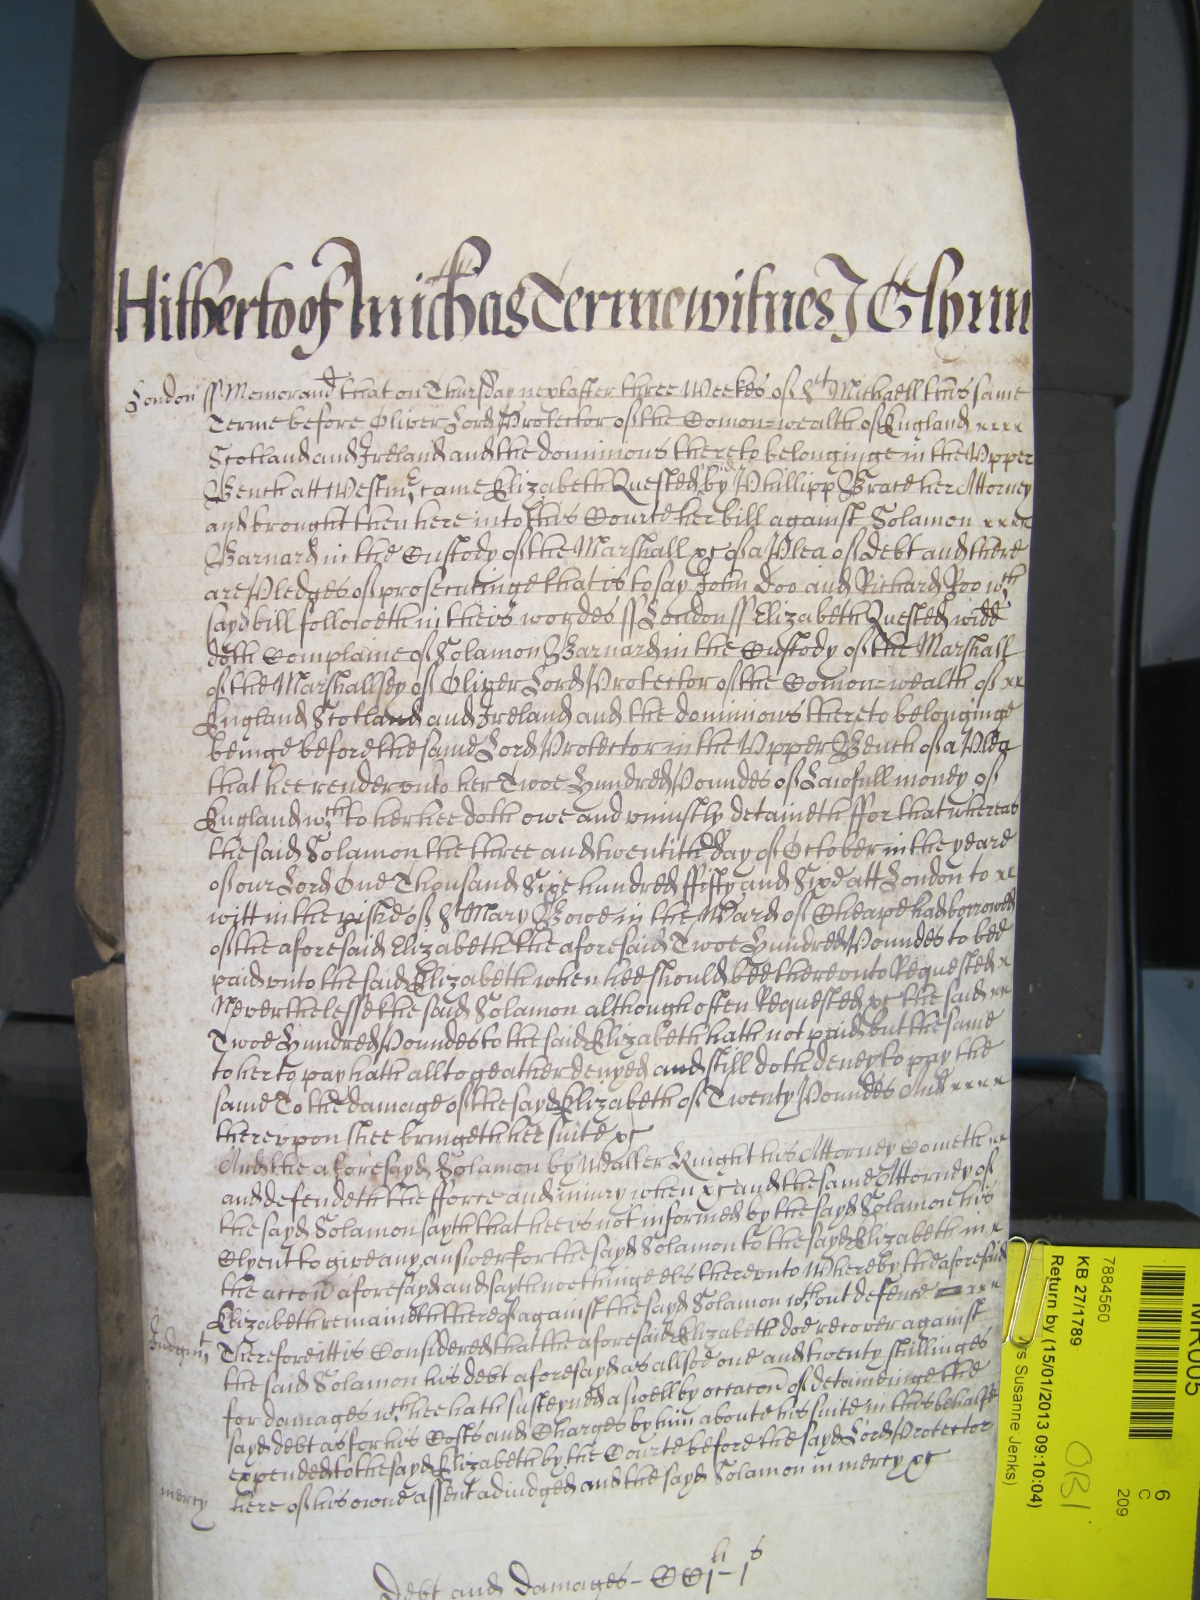 Hitherto of Michas Terme witnes J Glynn
London ss Memorand that on Thursday next after three Weekes of St Michaell this same
Terme before Oliver Lord Protector of the Comon=wealth of England
Scotland and Ireland and the dominions thereto belonginge in the Upper
Bench att Westmr came Elizabeth Quested widd by Phillipp Brace her Attorney
and brought then here into this Courte her bill against Solamon
Barnard in the Custody of the Marshall &c of a Plea of debt and there
are Pledges of prosecutinge that is to say John Doo and Richard Roo wch
sayd bill followeth in theis wordes ss London ss Elizabeth Quested widd
doth Complaine of Solamon Barnard in the Custody of the Marshall
of the Marshallsey of Oliver Lord Protector of the Comon=wealth of
England Scotland and Ireland and the dominions thereto belonginge
beinge before the same Lord Protector in the Upper Bench of a Plea
that hee render unto her Twoe Hundred Poundes of Lawfull money of
England wch to her hee doth owe and uniustly detaineth ffor that whereas
the said Solamon the three and twentith day of October in the yeare
of our Lord One Thousand Sixe hundred ffifty and Sixe att London to
witt in the pishe of St Mary Bowe in the Ward of Cheape had borrowed
of the aforesaid Elizabeth the aforesaid Twoe Hundred Poundes to bee
paid unto the said Elizabeth when hee should bee thereunto Requested
Neverthelesse the said Solamon although often Requested &c the said
Twoe Hundred Poundes to the said Elizabeth hath not paid but the same
to her to pay hath alltogeather denyed and still doth deney to pay the
same To the damage of the sayd Elizabeth of Twenty Poundes And
thereupon shee bringeth her suite &c
And the aforesayd Solamon by Walter Knight his Attorney Cometh
and defendeth the fforce and iniury when &c and the same Attorney of
the sayd Solamon sayth that hee is not informed by the sayd Solamon his
Clyent to give any answer for the sayd Solamon to the sayd Elizabeth in
the accon aforesayd and sayth noethinge els thereunto Whereby the aforesaid
Elizabeth remaineth thereof against the sayd Solamon wthout defence
Iudgmt Therefore itt is Considered that the aforesaid Elizabeth doe recover against
the said Solamon his debt aforesayd as allsoe one and twenty shillinges
for damages wch hee hath susteyned aswell by occacon of detaineinge the
sayd debt as for his Costs and Charges by him about his suite in this behalfe
expended to the sayd Elizabeth by the Courte before the sayd Lord Protector
mercy here of his owne assent adiudged and the sayd Solamon in mercy &c
Debt and Damages - CCjli - js
MR005
7884560
KB 27/1789
Return by (15/01/2013 09:10:04)
Susanne Jenks)
6
C
209
OBI